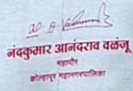 नंदकुमार आनंदराव वळंजू
महापौर
कोल्हापूर महानगरपालिका